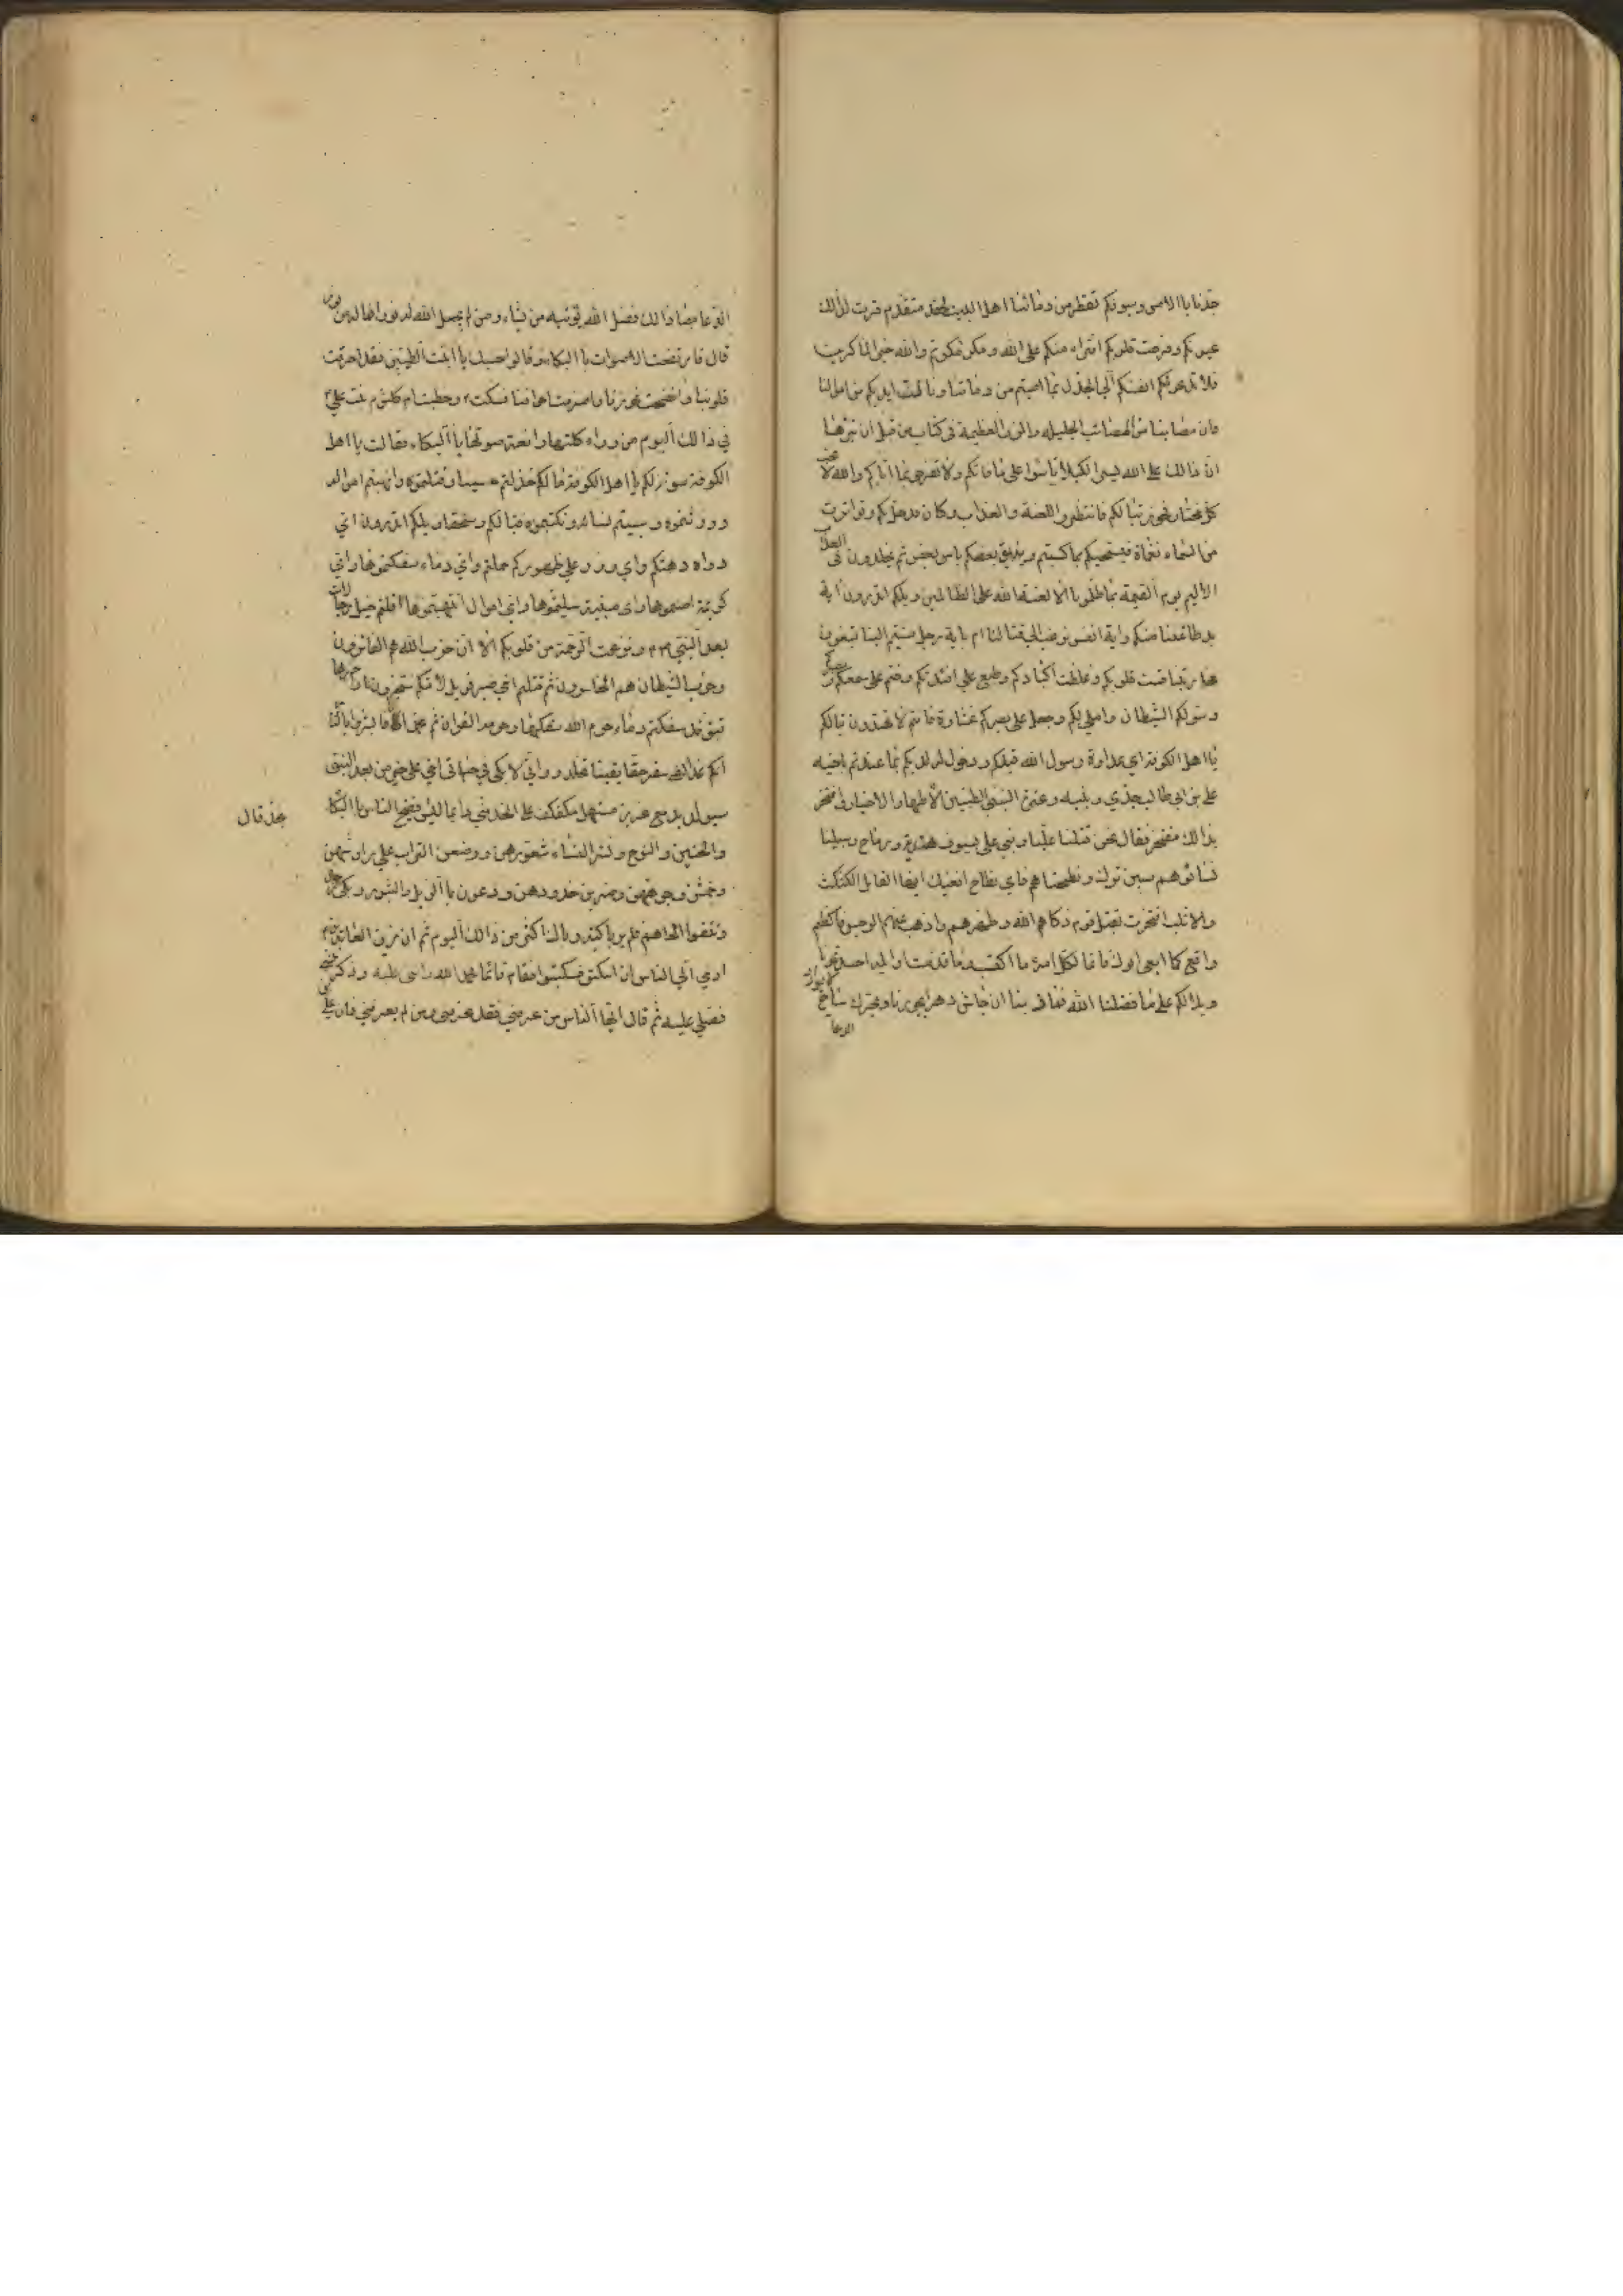 جدنا باالامس وسيوفكم تقطر من دمائنا اهل البيت لحقد متقدم قرت لذالك
عيونكم وفرحت قلوبكم افتراء منكم على الله ومكر مكرتم والله خير الماكرين
فلا تدعونكم انفسكم الي الجذل بما اصبتم من دمائنا ونالت ايديكم من اموالنا
فان مصابنا من المصائب الجليله والرزء العظيمة في كتاب من قبل ان نبرهنا
ان ذالك على الله يسير لكيلا تأسوا على مافاتكم ولا تفرحوا بما اتاكم والله لا يحب
كل مختار فخور تبا لكم فانتظروا اللعنة والعذاب وكان قد حل بكم وتواترت
من السماء نقماة فيسحتكم بما كسبتم ويذيق بعضكم باس بعض ثم تخلدون في العذاب
الاليم يوم القيمة بما ظلمونا الا لعنة الله على الظالمين ويلكم اتدرون اية
يد طاعنتنا منكم واية انفس نزعت الي قتالنا ام باية رجل مشيتم الينا تبغون
محاربتنا قست قلوبكم وغلظت اكبادكم وطبع علي افئدتكم وختم على سمعكم
وسول لكم الشيطان واملى لكم وجعل على بصركم غشاوة فانتم لا تهتدون تبا لكم
يا اهل الكوفة اي عداوة رسول الله قبلكم ودخول له لديكم بما عندتم باخيه
علي بن ابي طالب جدي وبنيه وعترة النبي الطيبين الاطهار الاخيار وافتخر
بذالك مفتخر فقال نحن قتلنا عليا وبني علي بسيوف هندية ورماح وسبينا
نسائهم سبي ترك ونطحناهم فاي نطاح بفيك ايها القايل الكثكث
والاثلب افتخرت بقتل قوم زكاهم الله وطهرهم واذهب عنهم الرجس فاكظم
واقع كما اقعى ابوك فانما لكل امرء ما اكتسب وما قدمت اوليد احسدتمونا
ويلا لكم على ما فضلنا الله فما ذنبنا ان جاش دهرا بحورنا وبحرك ساج لا يوار
الدعا
الدعامصا ذالك فضل الله يؤتيه من يشاء ومن لم يجعل الله له نورا فما له من نور
قال فارتفعت الاصوات باالبكاء وقالو حسبك ياابنت الطيبين فقد احرقت
قلوبنا وانضحت نحورنا واضرمت اجوافنا فسكت وخطبت ام كلثوم بنت علي
في ذالك اليوم من وراء كلتها رافعة صوتها باالبكاء فقالت يا اهل
الكوفة سوئة لكم يا اهل الكوفة ما لكم خذلتم حسينا وقتلتموه وانهبتم امواله
وورثتموه وسبيتم نسائه ونكبتموه فتبا لكم وسحقا ويلكم اتدرون اي
دواه دهتكم واي وزر علي ظهوركم حملتم واي دماء سفكتموها واي
كريمة اصبتموها واي صبية سلبتموها واي اموال انتهبتموها قتلتم خير رجالات
بعد النبي ونزعت الرحمة من قلوبكم الا ان حزب الله هم الفائزون
وحزب الشيطان هم الخاسرون ثم قتلتم اخي صبرا فويل لامكم ستجزون نارا حرها
يتوقد سفكتم دماء حرم الله سفكها وحرمه القران ثم محمد الا فابشروا باالنار
انكم غدا لفي سقر حقا يقينا تخلدو واني لابكي في حياتي على اخي على خير من بعد النبي
سيولد بدمع غزير مستهل مكفكف على الخد مني دايما ليس فضج الناس باالبكاء
والحنين والنوح ونشر النساء شعورهن ووضعن التراب على رؤسهن
وخمشن وجوههن وضربن خدودهن ودعون باالويل والثبور وبكى الرجال
ونتفوا لحاهم فلم ير باكية وباك اكثر من ذالك اليوم ثم ان زين العابدين
اومي الي الناس ان اسكتو فسكتوا فقام قائما فحمد الله واثنى عليه وذكر النبي
فصلي عليه ثم قال ايها الناس من عرفني فقد عرفني ومن لم يعرفني فانا علي
بحذ قال